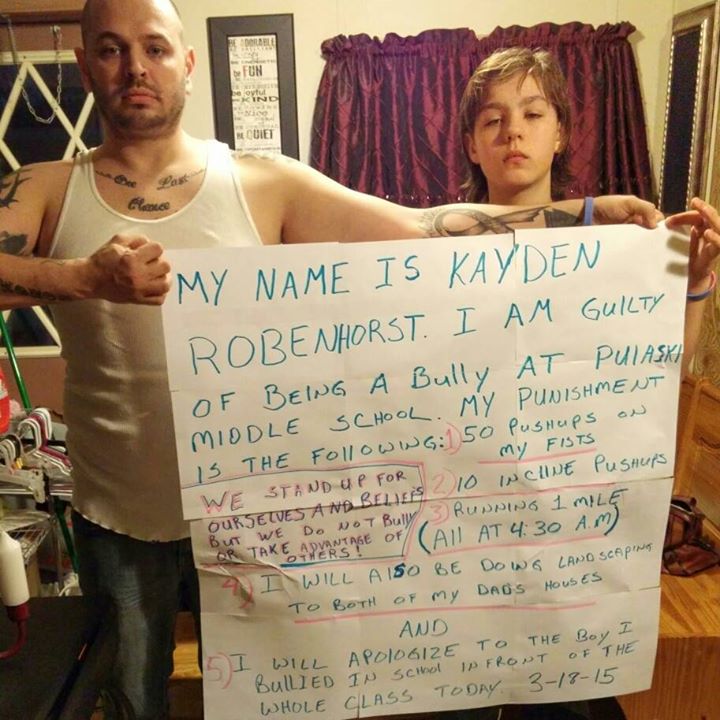 BE ADORABLE
be FUN
be joyful
be KIND
BE QUIET
One Last
Chance
MY NAME IS KAYDEN
ROBENHORST. I AM GUILTY
OF BEING A Bully AT PULASKI
MIDDLE SCHOOL. MY PUNISHMENT
IS THE FOllOWING: 1) 50 PUSHUPS ON
MY FISTS
2) 10 INCLINE PUSHUPS
3) RUNNING 1 MILE
(All AT 4:30 A.M)
WE STAND UP FOR
OURSELVES AND BELIEFS
BUT WE DO NOT Bully
OR TAKE ADVANTAGE OF
OTHERS!
4) I WILL AlSO BE DOING LANDSCAPING
TO BOTH OF MY DADS HOUSES
AND
5) I WILL APOlOGIZE TO THE Boy I
BUllIED IN SCHOOl IN FRONT OF THE
WHOLE CLASS TODAY. 3-18-15